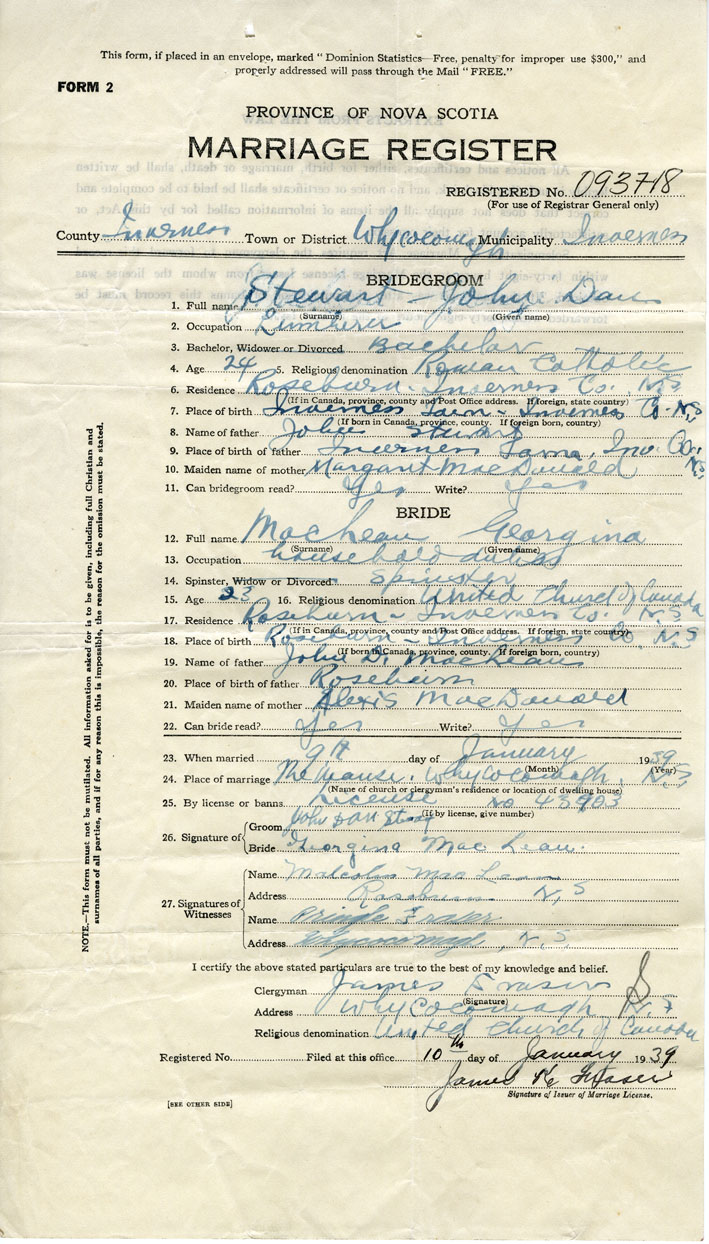 This form, if placed in an envelope, marked "Dominion Statistics—Free, penalty for improper use $300," and
properly addressed will pass through the Mail "FREE."
FORM 2
PROVINCE OF NOVA SCOTIA
MARRIAGE REGISTER
REGISTERED No. 093718
(For use of Registrar General only)
County Inverness Town or District Whycocomagh Municipality Inverness
BRIDEGROOM
1. Full name Stewart - John Dan
(Surname) (Given name)
2. Occupation Lumberer
3. Bachelor, Widower or Divorced Bachelor
4. Age 24 5. Religious denomination Roman Catholic
6. Residence Roseburn - Inverness Co. N.S
(If in Canada, province, county and Post Office address. If foreign, state country)
7. Place of birth Inverness Town - Inverness Co. N.S
(If born in Canada, province, county. If foreign born, country)
8. Name of father John Stewart
9. Place of birth of father Inverness Town, Inv. Co. N.S.
10. Maiden name of mother Margaret MacDonald
11. Can bridegroom read? Yes Write? yes
BRIDE
12. Full name MacLean Georgina
(Surname) (Given name)
13. Occupation household duties
14. Spinster, Widow or Divorced Spinster
15. Age 23 16. Religious denomination United Church of Canada
17. Residence Roseburn - Inverness Co. N.S
(If in Canada, province, county and Post Office address. If foreign, state country)
18. Place of birth Roseburn - Inverness Co. N.S
(If born in Canada, province, county. If foreign born, country)
19. Name of father John D. MacLean
20. Place of birth of father Roseburn
21. Maiden name of mother MacDonald
22. Can bride read? Yes Write? Yes
23. When married 9th day of January 1939
(Month) (Year)
24. Place of marriage The manse, Whycocomagh, N.S
(Name of church or clergyman's residence or location of dwelling house)
25. By license or banns License no 45903
(If by license, give number)
26. Signature of
Groom John Dan
Bride Georgina MacLean.
27. Signatures of Witnesses
Name Malcolm MacLean
Address Roseburn N.S
Name Fraser
Address Whycocomagh, N.S
I certify the above stated particulars are true to the best of my knowledge and belief.
Clergyman James Fraser
(Signature)
Address Whycocomagh N.S
Religious denomination United Church of Canada
Registered No. Filed at this office 10th day of January 1939
James Fraser
Signature of Issuer of Marriage License.
[SEE OTHER SIDE]
NOTE.—This form must not be mutilated. All information asked for is to be given, including full Christian and
surnames of all parties, and if for any reason this is impossible, the reason for the omission must be stated.